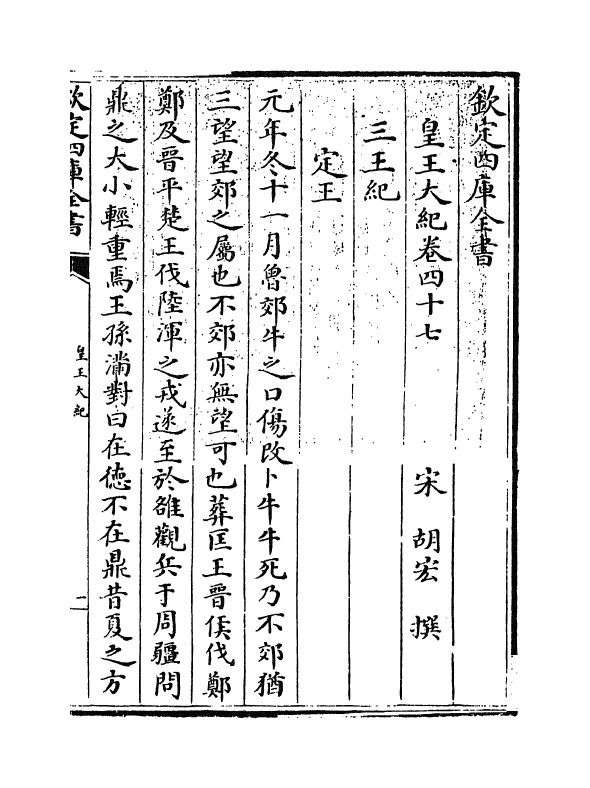 欽定四庫全書
皇王大紀卷四十七
宋 胡宏 撰
三王紀
定王
元年冬十一月魯郊牛之口傷改卜牛牛死乃不郊猶
三望望郊之屬也不郊亦無望可也葬匡王晉侯伐鄭
鄭及晉平楚王伐陸渾之戎遂至於雒觀兵于周疆問
鼎之大小輕重焉王孫滿對曰在德不在鼎昔夏之方
欽定四庫全書
皇王大紀